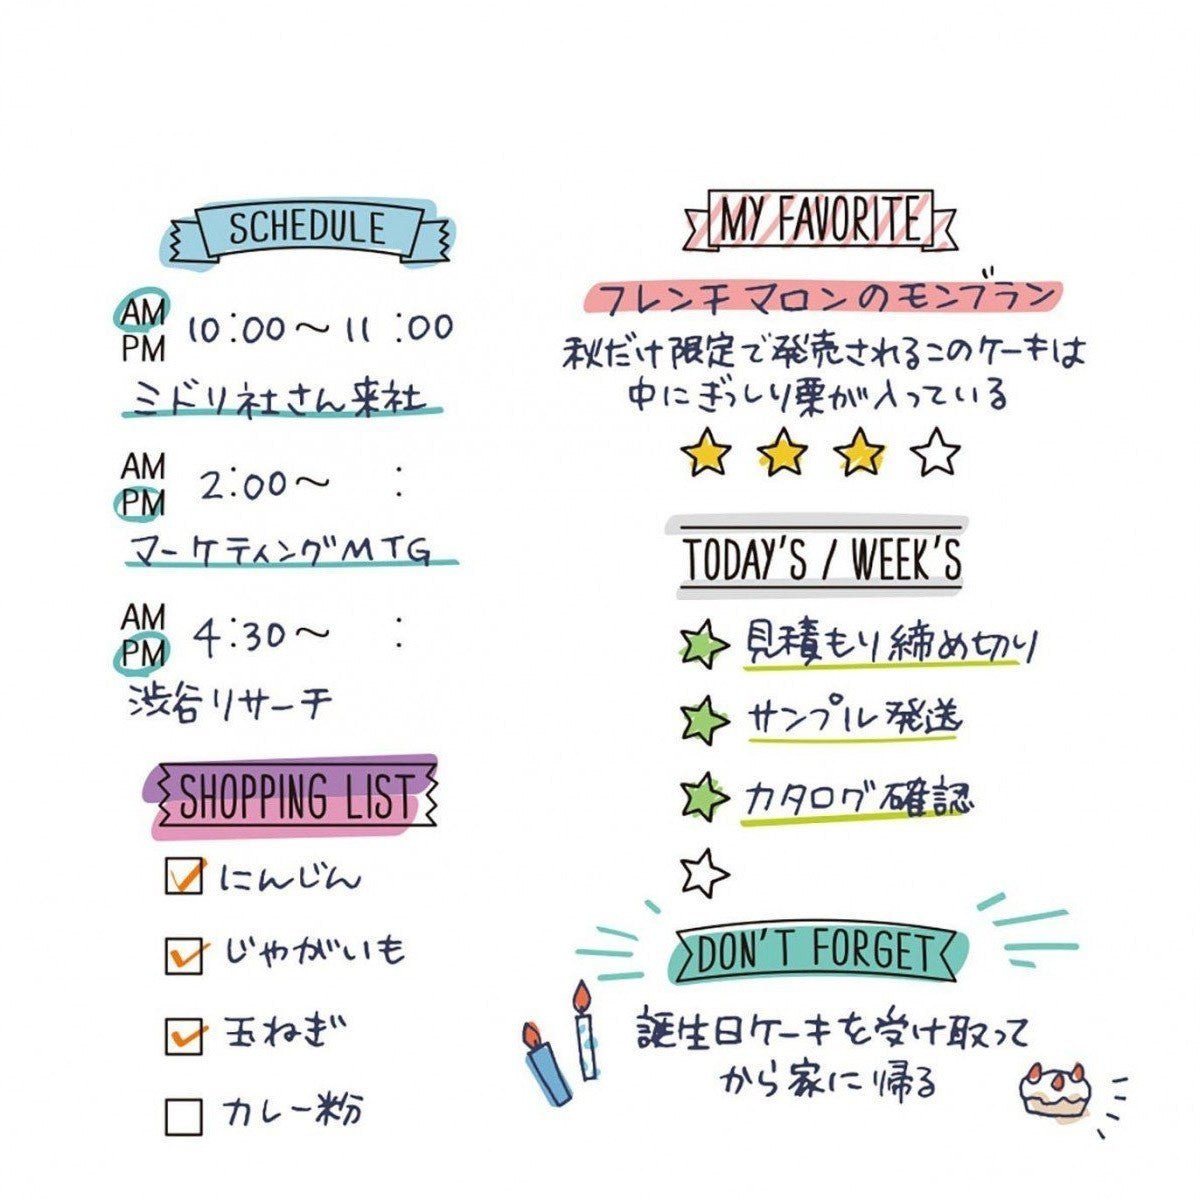 SCHEDULE
AM
PM
10:00〜11:00
ミドリ社さん来社
AM
PM
2:00〜 :
マーケティングMTG
AM
PM
4:30〜 :
渋谷リサーチ
SHOPPING LIST
にんじん
じゃがいも
玉ねぎ
カレー粉
MY FAVORITE
フレンチマロンのモンブラン
秋だけ限定で発売されるこのケーキは
中にぎっしり栗が入っている
TODAY'S / WEEK'S
見積もり締め切り
サンプル発送
カタログ確認
DON'T FORGET
誕生日ケーキを受け取って
から家に帰る